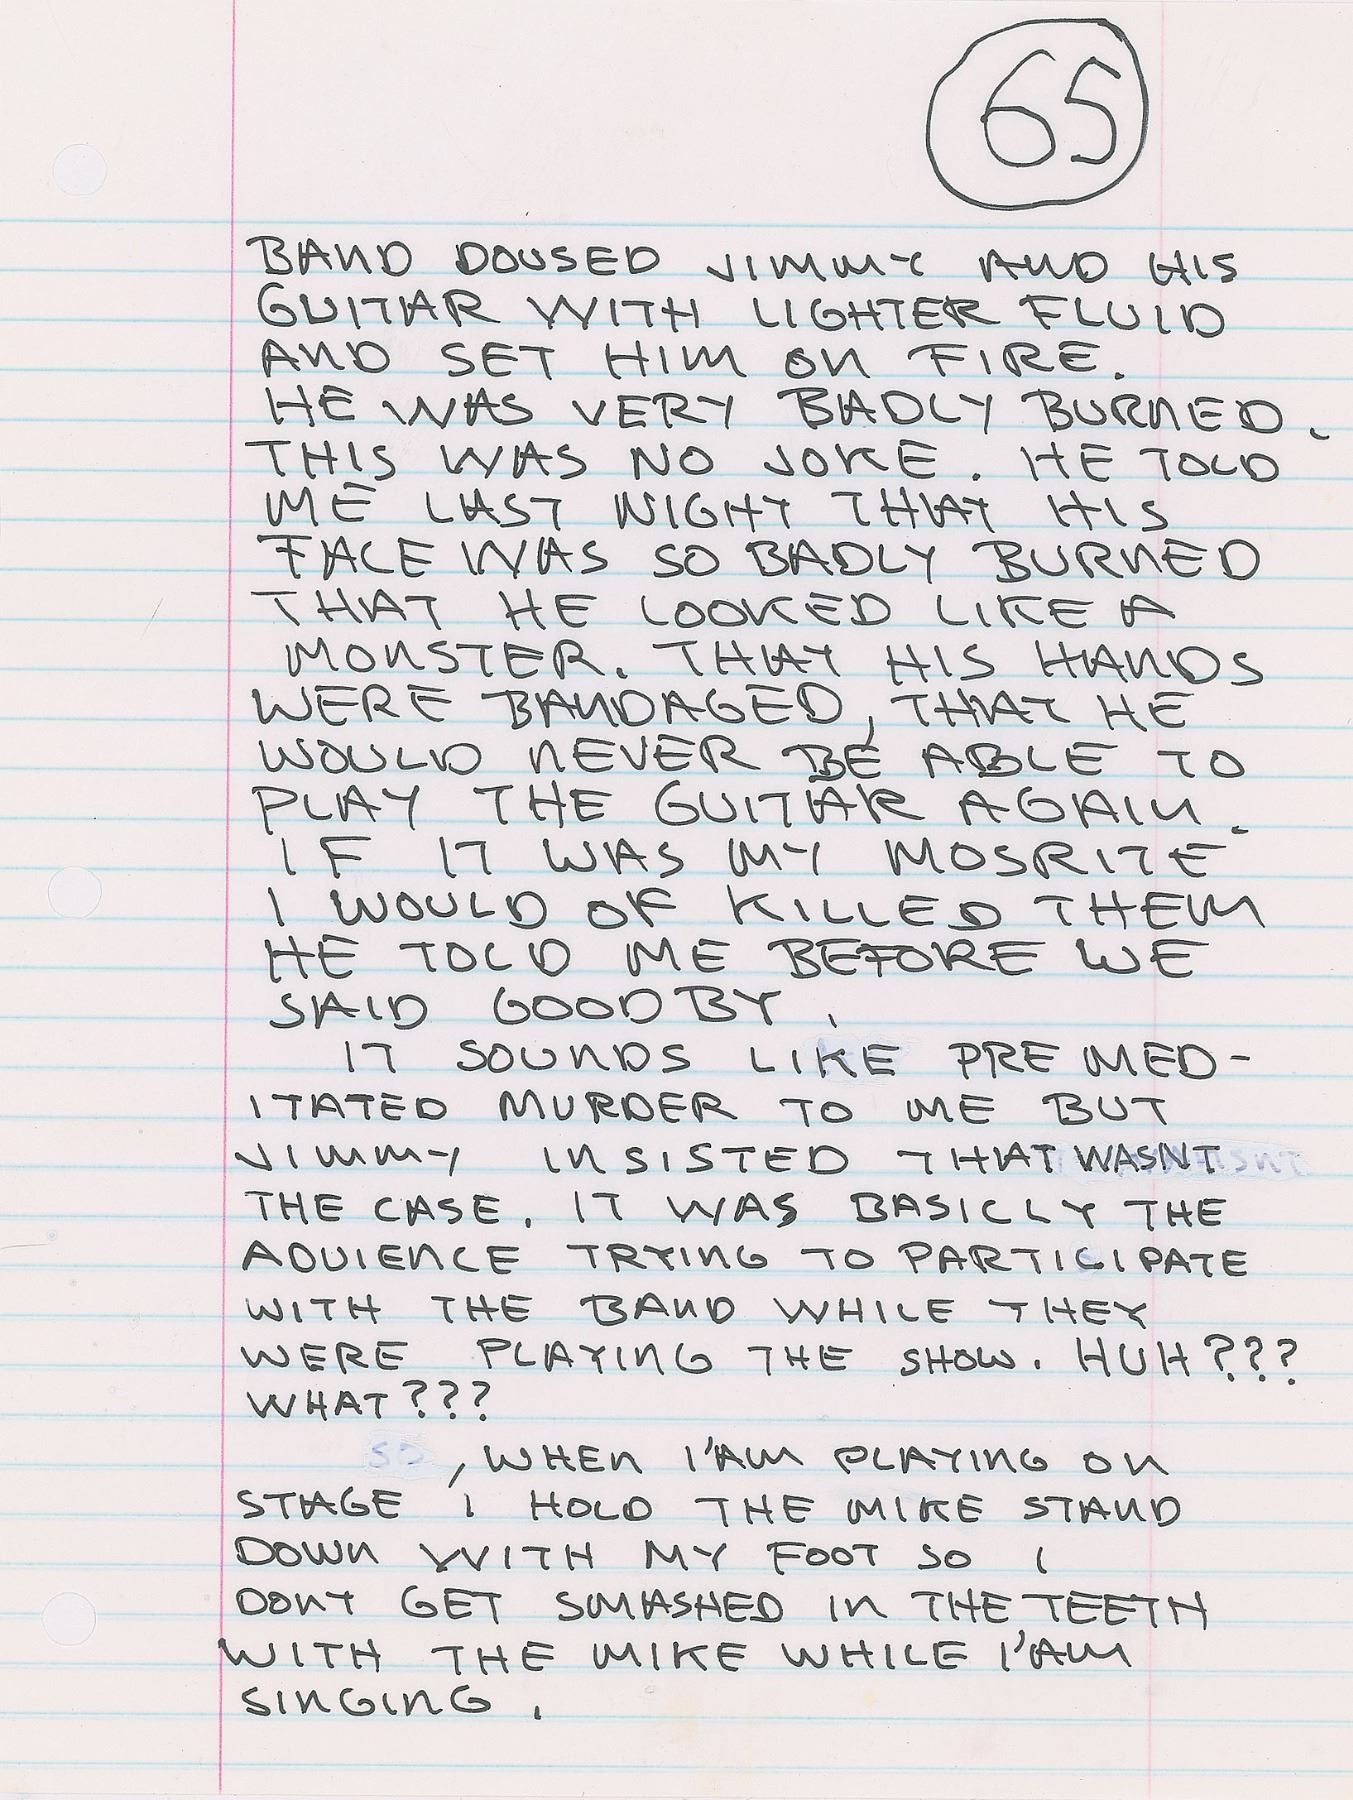 65
BAND DOUSED JIMMY AND HIS
GUITAR WITH LIGHTER FLUID
AND SET HIM ON FIRE.
HE WAS VERY BADLY BURNED.
THIS WAS NO JOKE. HE TOLD
ME LAST NIGHT THAT HIS
FACE WAS SO BADLY BURNED
THAT HE LOOKED LIKE A
MONSTER. THAT HIS HANDS
WERE BANDAGED, THAT HE
WOULD NEVER BE ABLE TO
PLAY THE GUITAR AGAIN.
IF IT WAS MY MOSRITE
I WOULD OF KILLED THEM
HE TOLD ME BEFORE WE
SAID GOOD BY.
IT SOUNDS LIKE PREMED-
ITATED MURDER TO ME BUT
JIMMY INSISTED THAT WASNT
THE CASE. IT WAS BASICLLY THE
ADUIENCE TRYING TO PARTICIPATE
WITH THE BAND WHILE THEY
WERE PLAYING THE SHOW. HUH???
WHAT???
SO, WHEN I'AM PLAYING ON
STAGE I HOLD THE MIKE STAND
DOWN WITH MY FOOT SO I
DONT GET SMASHED IN THE TEETH
WITH THE MIKE WHILE I'AM
SINGING.